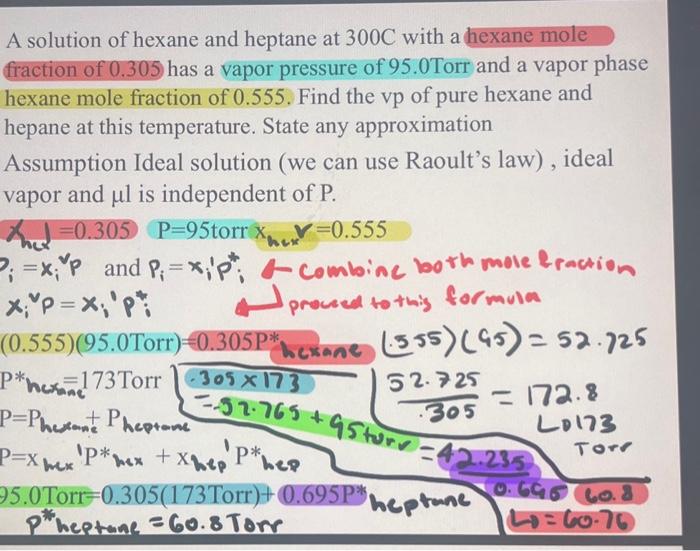 A solution of hexane and heptane at 300C with a hexane mole
fraction of 0.305 has a vapor pressure of 95.0Torr and a vapor phase
hexane mole fraction of 0.555. Find the vp of pure hexane and
hepane at this temperature. State any approximation
Assumption Ideal solution (we can use Raoult's law) , ideal
vapor and µl is independent of P.
x_hex^l =0.305 P=95torr x_hex^v=0.555
P_i = x_i^v P and P_i = x_i^l P*_i ← combine both mole fraction
x_i^v P = x_i^l P*_i ↲ proceed to this formula
(0.555)(95.0Torr)=0.305P*hexane (.555)(95) = 52.725
P*hexane=173Torr .305 x 173 52.725/.305 = 172.8
↳173 Torr
P=Phexane + Pheptane = -52.765 + 95torr = 42.235/0.695
P=x_hex^l P*hex + x_hep^l P*hep
95.0Torr=0.305(173Torr)+0.695P*heptane 60.8
P*heptane = 60.8 Torr ↳ = 60.76